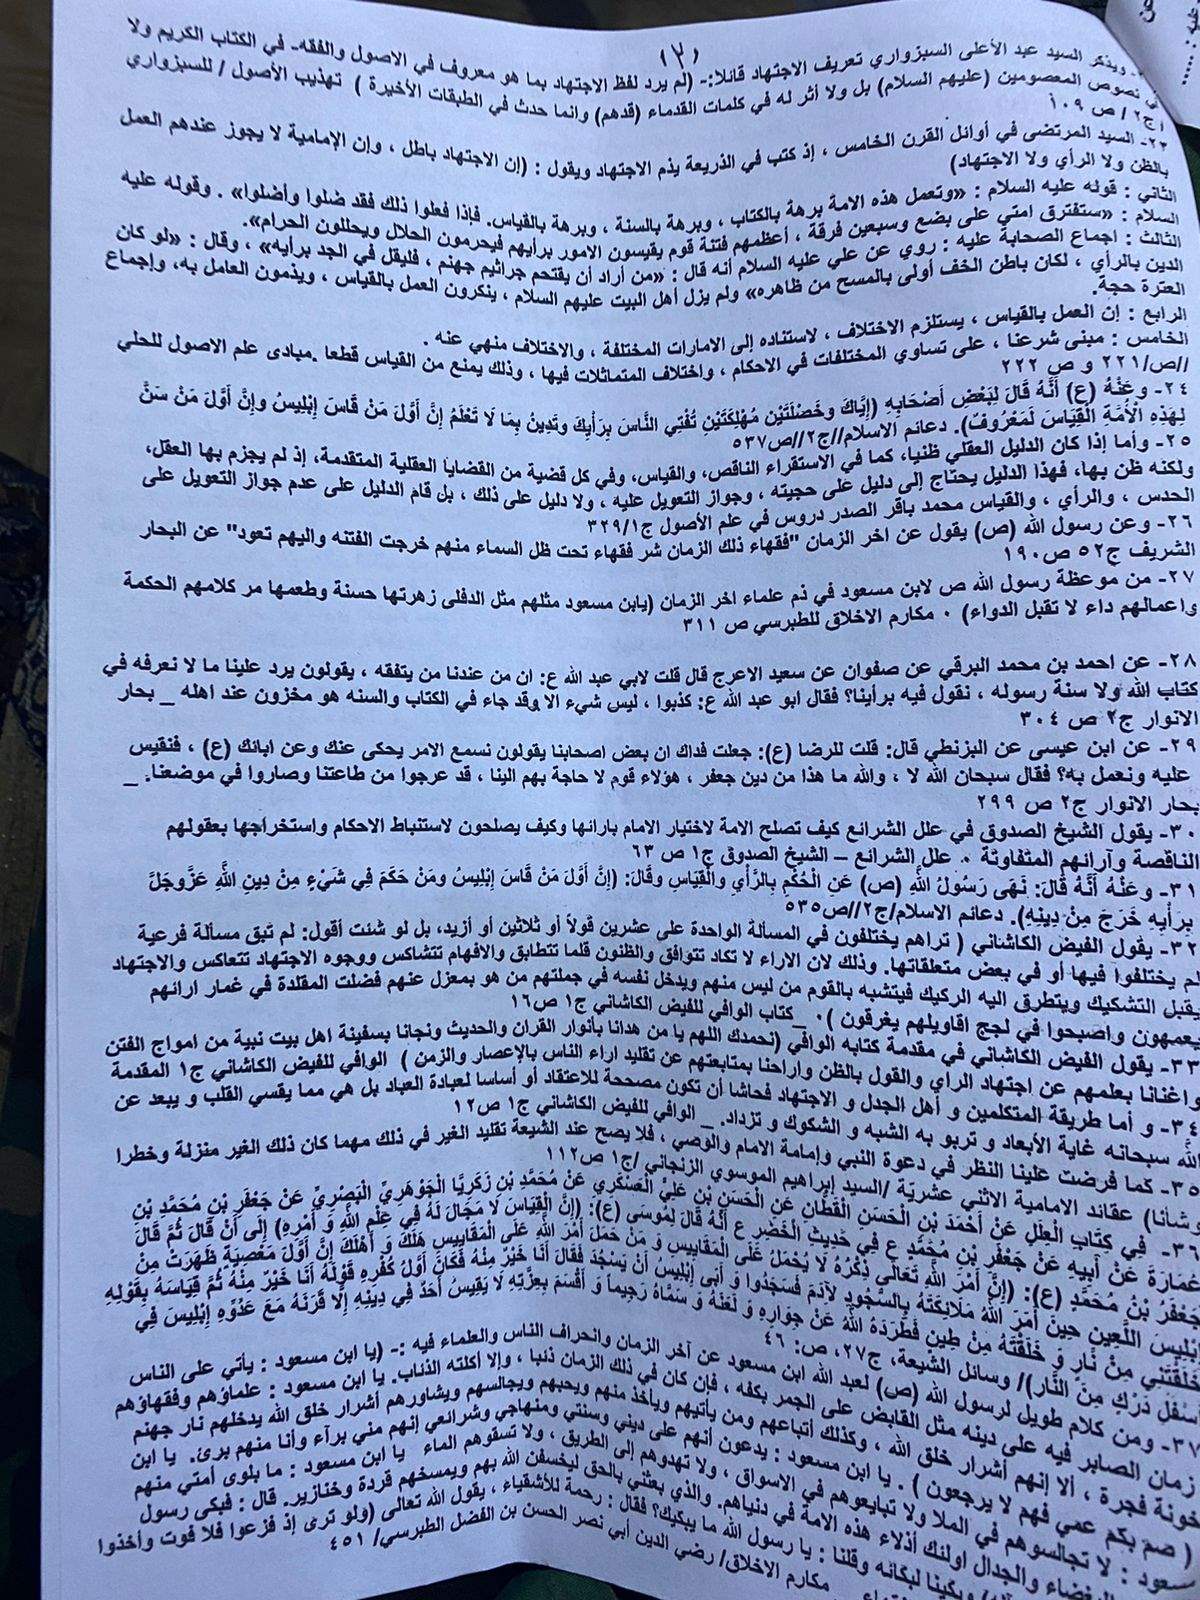 (٣)
ويذكر السيد عبد الأعلى السبزواري تعريف الاجتهاد قائلا:- (لم يرد لفظ الاجتهاد بما هو معروف في الاصول والفقه- في الكتاب الكريم ولا
في نصوص المعصومين (عليهم السلام) بل ولا أثر له في كلمات القدماء (قدهم) وانما حدث في الطبقات الأخيرة ) تهذيب الأصول / للسبزواري
ج٢ / ص ١٠٩
٢٣- السيد المرتضى في أوائل القرن الخامس ، إذ كتب في الذريعة يذم الاجتهاد ويقول : (إن الاجتهاد باطل ، وإن الإمامية لا يجوز عندهم العمل
بالظن ولا الرأي ولا الاجتهاد)
الثاني : قوله عليه السلام : «وتعمل هذه الامة برهة بالكتاب ، وبرهة بالسنة ، وبرهة بالقياس. فإذا فعلوا ذلك فقد ضلوا وأضلوا» . وقوله عليه
السلام : «ستفترق امتي على بضع وسبعين فرقة ، أعظمهم فتنة قوم يقيسون الامور برأيهم فيحرمون الحلال ويحللون الحرام».
الثالث : اجماع الصحابة عليه : روي عن علي عليه السلام أنه قال : «من أراد أن يقتحم جراثيم جهنم ، فليقل في الجد برأيه» ، وقال : «لو كان
الدين بالرأي ، لكان باطن الخف أولى بالمسح من ظاهره» ولم يزل أهل البيت عليهم السلام ، ينكرون العمل بالقياس ، ويذمون العامل به، وإجماع
العترة حجة.
الرابع : إن العمل بالقياس ، يستلزم الاختلاف ، لاستناده إلى الامارات المختلفة ، والاختلاف منهي عنه .
الخامس : مبنى شرعنا ، على تساوي المختلفات في الاحكام ، واختلاف المتماثلات فيها ، وذلك يمنع من القياس قطعا .مبادى علم الاصول للحلي
//ص/٢٢١ و ص ٢٢٢
٢٤- وعَنْهُ (ع) أَنَّهُ قَالَ لِبَعْضِ أَصْحَابِهِ (إِيَّاكَ وخَصْلَتَيْنِ مُهْلِكَتَيْنِ تُفْتِي النَّاسَ بِرَأْيِكَ وتَدِينُ بِمَا لَا تَعْلَمُ إِنَّ أَوَّلَ مَنْ قَاسَ إِبْلِيسُ وإِنَّ أَوَّلَ مَنْ سَنَّ
لِهَذِهِ الْأُمَّةِ الْقِيَاسَ لَمَعْرُوفٌ). دعائم الاسلام//ج٢//ص٥٣٧
٢٥- وأما إذا كان الدليل العقلي ظنيا، كما في الاستقراء الناقص، والقياس، وفي كل قضية من القضايا العقلية المتقدمة، إذ لم يجزم بها العقل،
ولكنه ظن بها، فهذا الدليل يحتاج إلى دليل على حجيته ، وجواز التعويل عليه ، ولا دليل على ذلك ، بل قام الدليل على عدم جواز التعويل على
الحدس ، والرأي ، والقياس محمد باقر الصدر دروس في علم الأصول ج٣٢٩/١
٢٦- وعن رسول الله (ص) يقول عن اخر الزمان "فقهاء ذلك الزمان شر فقهاء تحت ظل السماء منهم خرجت الفتنه واليهم تعود" عن البحار
الشريف ج٥٢ ص١٩٠
٢٧- من موعظة رسول الله ص لابن مسعود في ذم علماء اخر الزمان (يابن مسعود مثلهم مثل الدفلى زهرتها حسنة وطعمها مر كلامهم الحكمة
واعمالهم داء لا تقبل الدواء) ٠ مكارم الاخلاق للطبرسي ص ٣١١
٢٨- عن احمد بن محمد البرقي عن صفوان عن سعيد الاعرج قال قلت لابي عبد الله ع: ان من عندنا من يتفقه ، يقولون يرد علينا ما لا نعرفه في
كتاب الله ولا سنة رسوله ، نقول فيه برأينا؟ فقال ابو عبد الله ع: كذبوا ، ليس شيء الا وقد جاء في الكتاب والسنه هو مخزون عند اهله _ بحار
الانوار ج٢ ص ٣٠٤
٢٩- عن ابن عيسى عن البزنطي قال: قلت للرضا (ع): جعلت فداك ان بعض اصحابنا يقولون نسمع الامر يحكى عنك وعن ابائك (ع) ، فنقيس
عليه ونعمل به؟ فقال سبحان الله لا ، والله ما هذا من دين جعفر ، هؤلاء قوم لا حاجة بهم الينا ، قد عرجوا من طاعتنا وصاروا في موضعنا. _
بحار الانوار ج٢ ص ٢٩٩
٣٠- يقول الشيخ الصدوق في علل الشرائع كيف تصلح الامة لاختيار الامام بارائها وكيف يصلحون لاستنباط الاحكام واستخراجها بعقولهم
الناقصة وآرائهم المتفاوتة ٠ علل الشرائع – الشيخ الصدوق ج١ ص ٦٣
٣١- وعَنْهُ أَنَّهُ قَالَ: نَهَى رَسُولُ اللَّهِ (ص) عَنِ الْحُكْمِ بِالرَّأْيِ والْقِيَاسِ وقَالَ: (إِنَّ أَوَّلَ مَنْ قَاسَ إِبْلِيسُ ومَنْ حَكَمَ فِي شَيْءٍ مِنْ دِينِ اللَّهِ عَزَّوجَلَّ
بِرَأْيِهِ خَرَجَ مِنْ دِينِهِ). دعائم الاسلام/ج٢//ص٥٣٥
٣٢- يقول الفيض الكاشاني ( تراهم يختلفون في المسألة الواحدة على عشرين قولاً أو ثلاثين أو أزيد، بل لو شئت أقول: لم تبق مسألة فرعية
لم يختلفوا فيها أو في بعض متعلقاتها. وذلك لان الاراء لا تكاد تتوافق والظنون قلما تتطابق والافهام تتشاكس ووجوه الاجتهاد تتعاكس والاجتهاد
يقبل التشكيك ويتطرق اليه الركيك فيتشبه بالقوم من ليس منهم ويدخل نفسه في جملتهم من هو بمعزل عنهم فضلت المقلدة في غمار ارائهم
يعمهون واصبحوا في لجج اقاويلهم يغرقون )٠ _كتاب الوافي للفيض الكاشاني ج١ ص١٦
٣٣- يقول الفيض الكاشاني في مقدمة كتابه الوافي (نحمدك اللهم يا من هدانا بأنوار القران والحديث ونجانا بسفينة اهل بيت نبية من امواج الفتن
واغنانا بعلمهم عن اجتهاد الراي والقول بالظن واراحنا بمتابعتهم عن تقليد اراء الناس بالإعصار والزمن ) الوافي للفيض الكاشاني ج١ المقدمة
٣٤- و أما طريقة المتكلمين و أهل الجدل و الاجتهاد فحاشا أن تكون مصححة للاعتقاد أو أساسا لعبادة العباد بل هي مما يقسي القلب و يبعد عن
الله سبحانه غاية الأبعاد و تربو به الشبه و الشكوك و تزداد. _ الوافي للفيض الكاشاني ج١ ص١٢
٣٥- كما فرضت علينا النظر في دعوة النبي وإمامة الامام والوصي ، فلا يصح عند الشيعة تقليد الغير في ذلك مهما كان ذلك الغير منزلة وخطرا
وشأنا) عقائد الامامية الاثني عشرية /السيد إبراهيم الموسوي الزنجاني /ج١ ص١١٢
٣٦- فِي كِتَابِ الْعِلَلِ عَنْ أَحْمَدَ بْنِ الْحَسَنِ الْقَطَّانِ عَنِ الْحَسَنِ بْنِ عَلِيٍّ الْعَسْكَرِيِّ عَنْ مُحَمَّدِ بْنِ زَكَرِيَّا الْجَوْهَرِيِّ الْبَصْرِيِّ عَنْ جَعْفَرِ بْنِ مُحَمَّدِ بْنِ
عُمَارَةَ عَنْ أَبِيهِ عَنْ جَعْفَرِ بْنِ مُحَمَّدٍ ع فِي حَدِيثِ الْخَضِرِ ع أَنَّهُ قَالَ لِمُوسَى (ع): (إِنَّ الْقِيَاسَ لَا مَجَالَ لَهُ فِي عِلْمِ اللَّهِ وَ أَمْرِهِ) إِلَى أَنْ قَالَ ثُمَّ قَالَ
جَعْفَرُ بْنُ مُحَمَّدٍ (ع): (إِنَّ أَمْرَ اللَّهِ تَعَالَى ذِكْرُهُ لَا يُحْمَلُ عَلَى الْمَقَايِيسِ وَ مَنْ حَمَلَ أَمْرَ اللَّهِ عَلَى الْمَقَايِيسِ هَلَكَ وَ أَهْلَكَ إِنَّ أَوَّلَ مَعْصِيَةٍ ظَهَرَتْ مِنْ
إِبْلِيسَ اللَّعِينِ حِينَ أَمَرَ اللَّهُ مَلَائِكَتَهُ بِالسُّجُودِ لِآدَمَ فَسَجَدُوا وَ أَبَى إِبْلِيسُ أَنْ يَسْجُدَ فَقَالَ أَنَا خَيْرٌ مِنْهُ فَكَانَ أَوَّلُ كُفْرِهِ قَوْلَهُ أَنَا خَيْرٌ مِنْهُ ثُمَّ قِيَاسَهُ بِقَوْلِهِ
خَلَقْتَنِي مِنْ نَارٍ وَ خَلَقْتَهُ مِنْ طِينٍ فَطَرَدَهُ اللَّهُ عَنْ جِوَارِهِ وَ لَعَنَهُ وَ سَمَّاهُ رَجِيماً وَ أَقْسَمَ بِعِزَّتِهِ لَا يَقِيسُ أَحَدٌ فِي دِينِهِ إِلَّا قَرَنَهُ مَعَ عَدُوِّهِ إِبْلِيسَ فِي
أَسْفَلِ دَرْكٍ مِنَ النَّارِ)/ وسائل الشيعة، ج٢٧، ص: ٤٦
٣٧- ومن كلام طويل لرسول الله (ص) لعبد الله ابن مسعود عن آخر الزمان وانحراف الناس والعلماء فيه :- (يا ابن مسعود : يأتي على الناس
زمان الصابر فيه على دينه مثل القابض على الجمر بكفه ، فإن كان في ذلك الزمان ذئبا ، وإلا أكلته الذئاب. يا ابن مسعود : علماؤهم وفقهاؤهم
خونة فجرة ، ألا إنهم أشرار خلق الله ، وكذلك أتباعهم ومن يأتيهم ويأخذ منهم ويحبهم ويجالسهم ويشاورهم أشرار خلق الله يدخلهم نار جهنم
( صم بكم عمي فهم لا يرجعون ) . يا ابن مسعود : يدعون أنهم على ديني وسنتي ومنهاجي وشرائعي إنهم مني برآء وأنا منهم برئ. يا ابن
مسعود : لا تجالسوهم في الملا ولا تبايعوهم في الاسواق ، ولا تهدوهم إلى الطريق ، ولا تسقوهم الماء يا ابن مسعود : ما بلوى أمتي منهم
البغضاء والجدال اولئك أذلاء هذه الامة في دنياهم. والذي بعثني بالحق ليخسفن الله بهم ويمسخهم قردة وخنازير. قال : فبكى رسول
وبكينا لبكائه وقلنا : يا رسول الله ما يبكيك؟ فقال : رحمة للأشقياء ، يقول الله تعالى (ولو ترى إذ فزعوا فلا فوت وأخذوا
مكارم الاخلاق/ رضي الدين أبي نصر الحسن بن الفضل الطبرسي/ ٤٥١